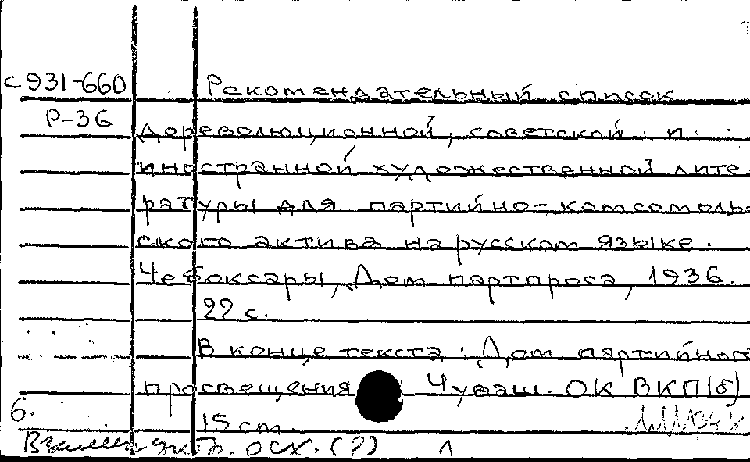 с931-660 Рекомендательный список
Р-36 дореволюционной, советской и
иностранной художественной лите-
ратуры для партийно-комсомоль-
ского актива на русском языке.
Чебоксары, Дом партпроса, 1936.
22 с.
В конце текста: Дом партийного
просвещения Чуваш. ОК ВКП(б)
6. 15 cm.
осх. (Р)